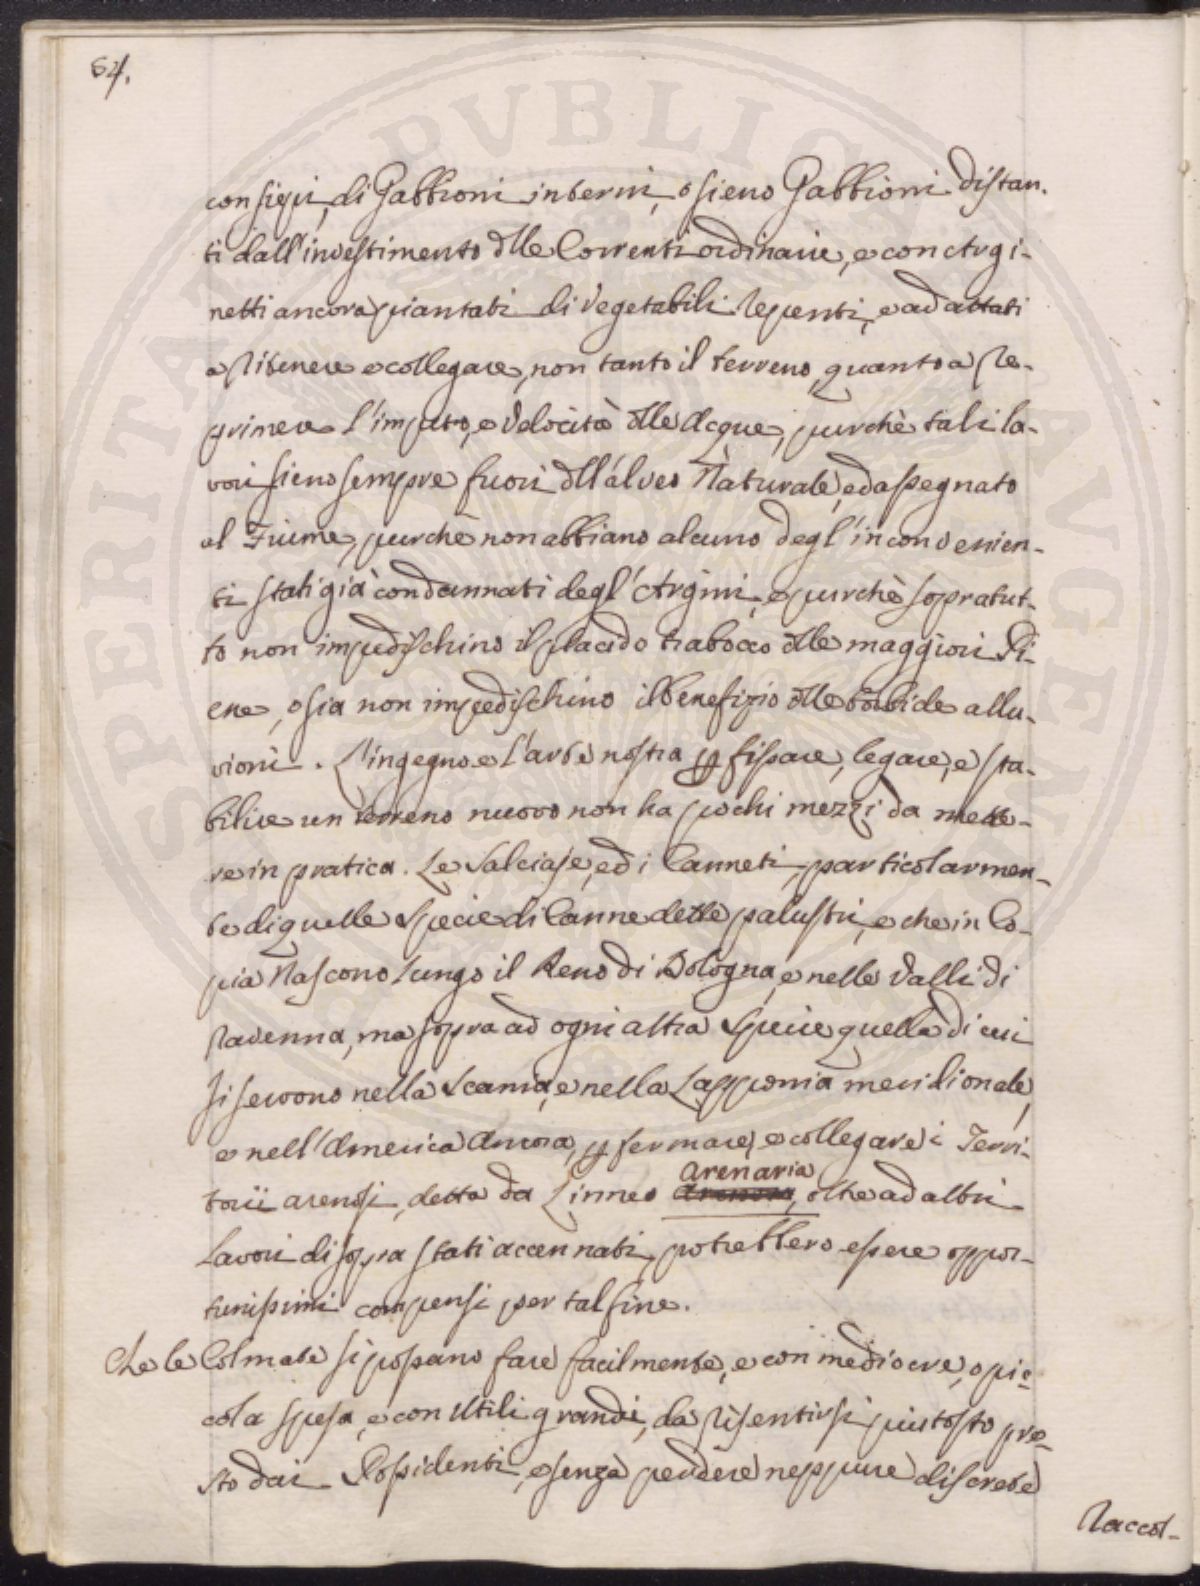 84.
consigli, di Gabbioni interni, o sieno Gabbioni distan-
ti dall'investimento dlle Correnti ordinarie, e con Argi-
netti ancora piantati di Vegetabili Repenti, e adattati
a Ritenere e collegare, non tanto il terreno, quanto a Re-
primere l'impeto, e Velocità dlle Acque, purchè tali la-
vori sieno sempre fuori dll'alveo Naturale, ed assegnato
al Fiume, purchè non abbiano alcuno degl'inconvenien-
ti stati già condannati degl'Argini, e purchè sopratut-
to non impedischino il placido trabocco dlle maggiori Pi-
ene, o sia non impedischino il benefizio dlle torbide allu-
vioni. L'ingegno e l'arte nostra p fissare, legare, e sta-
bilire un terreno nuovo non ha pochi mezzi da mette-
re in pratica. Le Salciaje, ed i Canneti, particolarmen-
te di quelle Specie di Canne dette palustri, e che in Co-
pia Nascono Lungo il Reno di Bologna, e nelle Valli di
Ravenna, ma sopra ad ogni altra Specie quella di cui
si servono nella Scania, e nella Lapponia meridionale,
e nell'America Ancora, p fermare, e collegare i Terri-
torii arenosi, detta da Linneo arenaria, oltre ad altri
Lavori di sopra stati accennati, potrebbero essere oppor-
tunissimi compensi per tal fine.
Che le Colmate si possano fare facilmente, e con mediocre, o pic-
cola spesa, e con Utili grandi, da Risentirsi piutosto pre-
sto dai Possidenti, e senza perdere neppure discrete
Raccol-